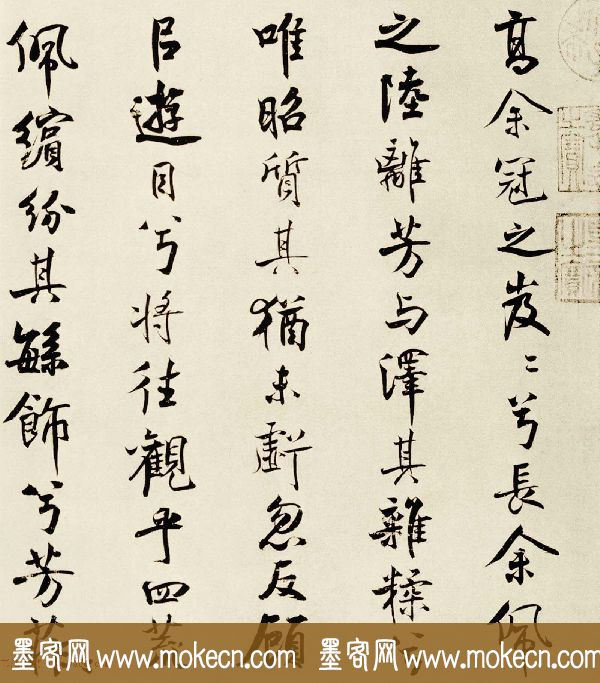 高余冠之岌〻兮長余佩
之陸離芳与澤其雜糅兮
唯昭質其猶未虧忽反顧
㠯遊目兮将往觀乎四荒
佩繽紛其繁飾兮芳菲
墨客网 www.mokecn.com 墨客网 www.mokecn.com